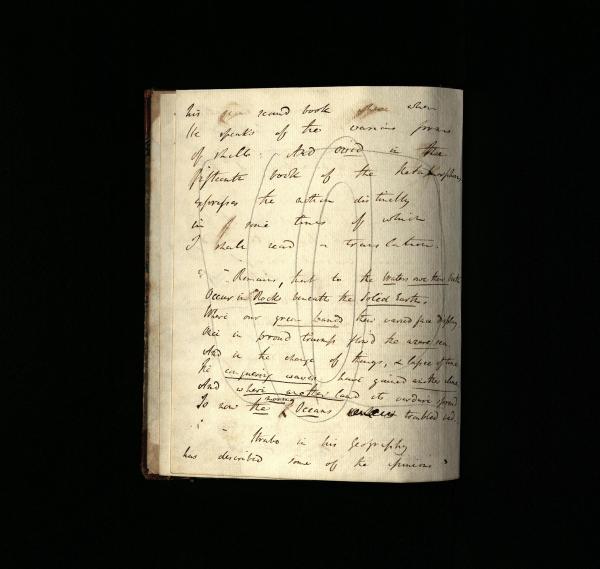 his second book when
He speaks of the various forms
of shells. And ovid in the
fifteenth book of the Metamorphoses,
expresses the notion distinctly
in some lines of which
I shall read a translation.
"Remains, that to the waters owe their birth
Occur in Rocks beneath the Solid Earth.
Where our green lands their varied face display
Once in proud triumph flow'd the azure sea,
And in the change of things, & lapse of time
The conquering waves have gained another clime
And where another land its verdure spread
Is now the moving Oceans troubled bed.
" - Strabo in his Geography
has described some of the opinions